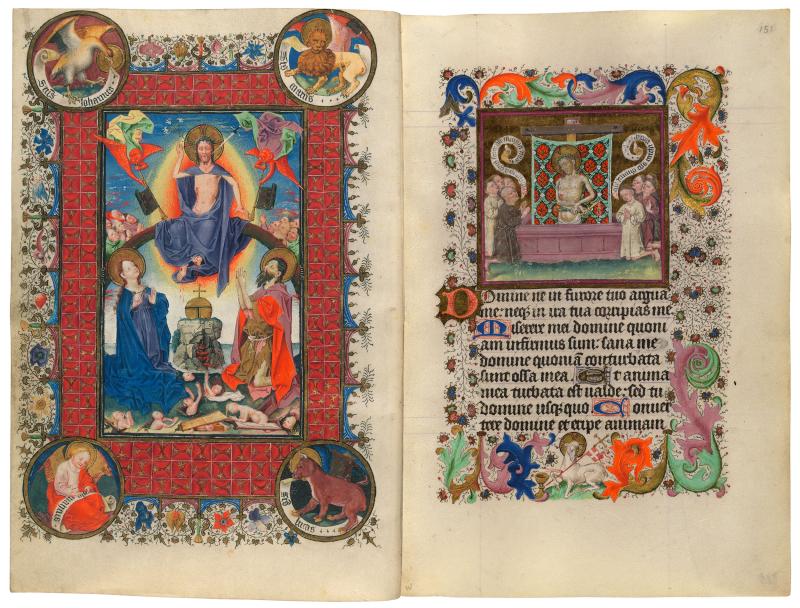 scūs Johannes
scūs marcus
scūs matheus
scūs lucas
151
Domine ne in furore tuo argua
me: neq; in ira tua corripias me
Miserere mei domine quoni
am infirmus sum: sana me
domine quoniā conturbata
sunt ossa mea. Et anima
mea turbata est ualde: sed tu
domine usq; quo Conuer
tere domine et eripe animam